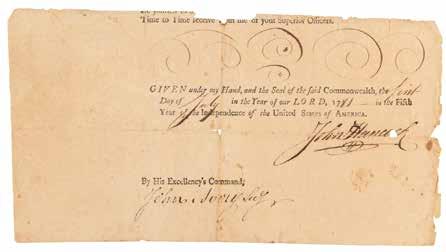 Time to Time receive from me or your Superior Officers.
GIVEN under my Hand, and the Seal of the said Commonwealth, the first
Day of July in the Year of our LORD, 1781 in the Fifth
Year of the Independence of the United States of America.
John Hancock
By His Excellency's Command,
John Avery Secy